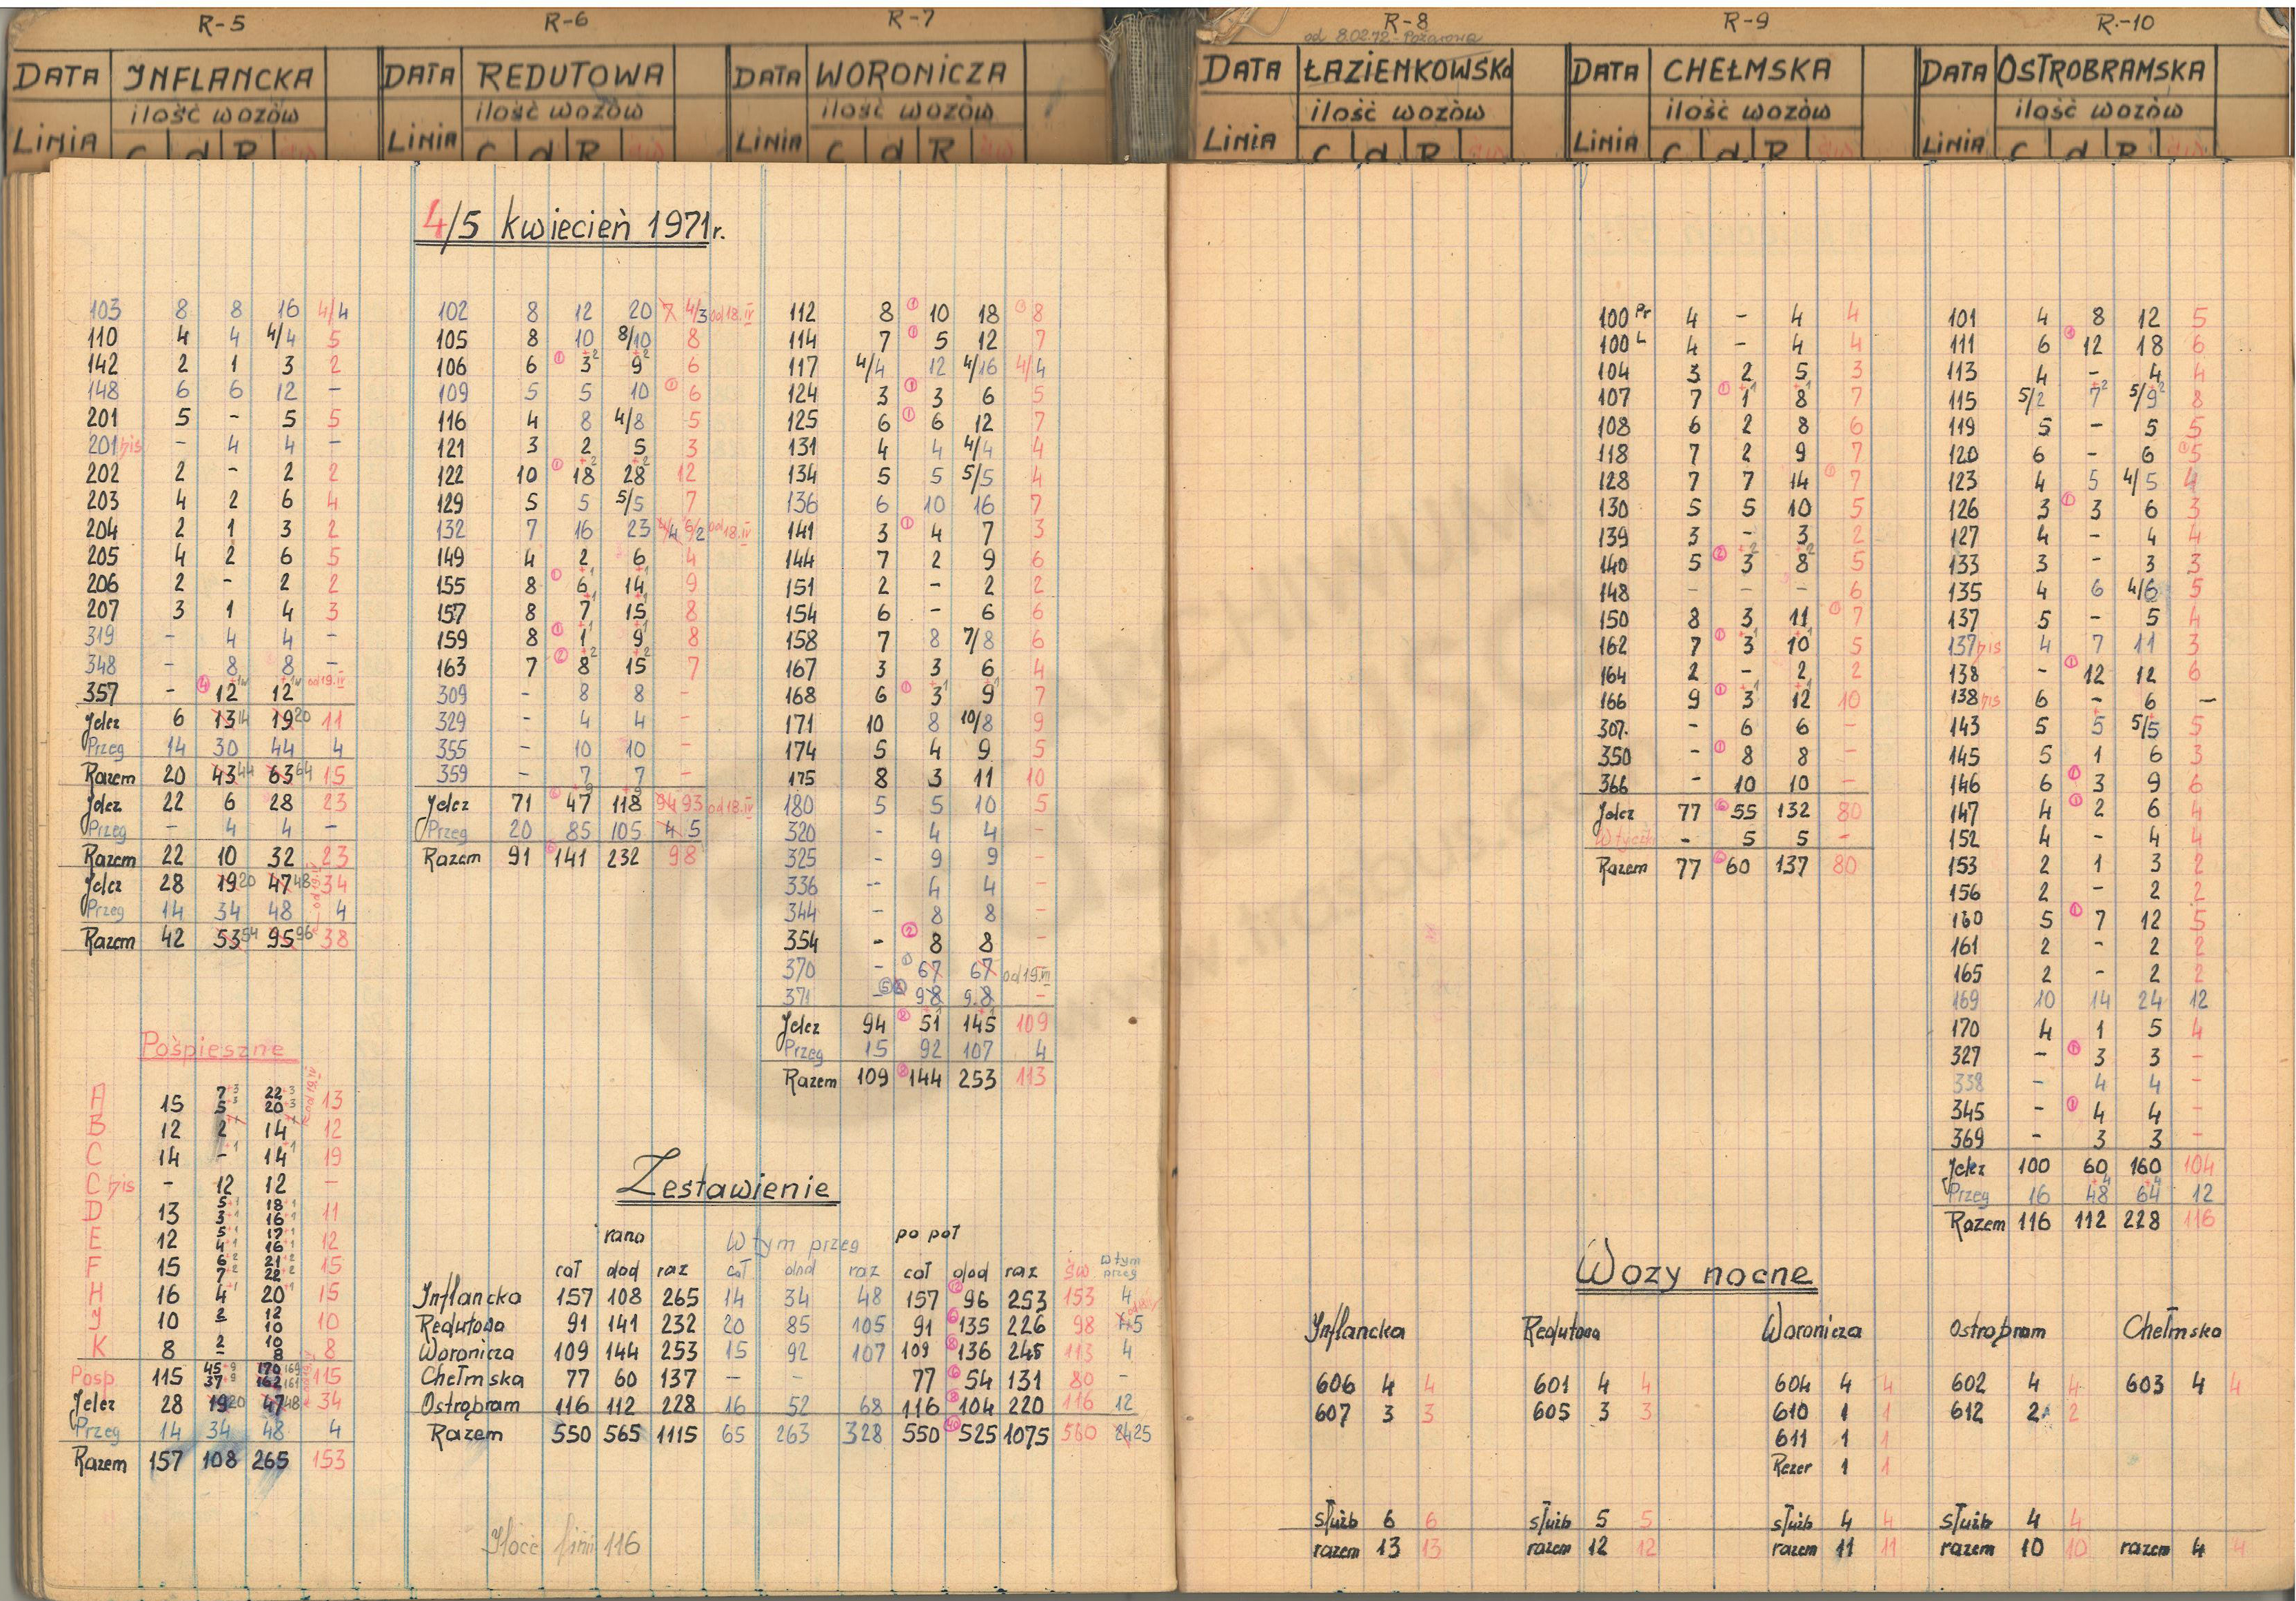 R-5 R-6 R-7 R-8 R-9 R.-10
od 8.02.72 - Pożarowa
DATA INFLANCKA DATA REDUTOWA DATA WORONICZA DATA ŁAZIENKOWSKA DATA CHEŁMSKA DATA OSTROBRAMSKA
ilość wozów ilość wozów ilość wozów ilość wozów ilość wozów ilość wozów
LINIA C d R LINIA C d R LINIA C d R LINIA C d R LINIA C d R LINIA C d R
4/5 kwiecień 1971r.
103 8 8 16 4/4
110 4 4 4/4 5
142 2 1 3 2
148 6 6 12 -
201 5 - 5 5
201bis - 4 4 -
202 2 - 2 2
203 4 2 6 4
204 2 1 3 2
205 4 2 6 5
206 2 - 2 2
207 3 1 4 3
319 - 4 4 -
348 - 8 8 -
357 - 4 12 12 od 19.IV
Jelcz 6 13 14 19 20 11
Przeg 14 30 44 4
Razem 20 43 44 63 64 15
Jelcz 22 6 28 23
Przeg - 4 4 -
Razem 22 10 32 23
Jelcz 28 19 20 47 48 34
Przeg 14 34 48 4
Razem 42 53 54 95 96 38
Pośpieszne
A 15 7+3 22+3 13
5+3 20+3
B 12 2 14 12
C 14 - +1 14+1 19
C bis - 12 12 -
D 13 5+1 18+1 11
3+1 16+1
E 12 5+1 17+1 12
4+1 16+1
F 15 6+2 21+2 15
7+2 22+2
H 16 4+1 20+1 15
J 10 2 12 10
- 10
K 8 2 10 8
- 8
Posp. 115 45+9 170 169 115
37+9 162 161
Jelcz 28 19 20 47 48 34
Przeg 14 34 48 4
Razem 157 108 265 153
102 8 12 20 7 4/3 od 18.IV
105 8 10 8/10 8
106 6 1 3+2 9+2 6
109 5 5 10 1 6
116 4 8 4/8 5
121 3 2 5 3
122 10 1 18+2 28+2 12
129 5 5 5/5 7
132 7 16 23 4/4 6/2 od 18.IV
149 4 2 6 4
155 8 1 6+1 14+1 9
157 8 7+1 15+1 8
159 8 1 1+1 9+1 8
163 7 2 8+2 15+2 7
309 - 8 8 -
329 - 4 4 -
355 - 10 10 -
359 - 7 7 -
Jelcz 71 6 47+9 118+9 94 93 od 18.IV
Przeg 20 85 105 4 5
Razem 91 6 141 232 98
112 8 1 10 18 1 8
114 7 1 5 12 7
117 4/4 12 4/16 4/4
124 3 1 3 6 5
125 6 1 6 12 7
131 4 4 4/4 4
134 5 5 5/5 4
136 6 10 16 7
141 3 1 4 7 3
144 7 2 9 6
151 2 - 2 2
154 6 - 6 6
158 7 8 7/8 6
167 3 3 6 4
168 6 1 3+1 9+1 7
171 10 8 10/8 9
174 5 4 9 5
175 8 3 11 10
180 5 5 10 5
320 - 4 4 -
325 - 9 9 -
336 - 4 4 -
344 - 8 8 -
354 - 2 8 8 -
370 - 1 67 67 od 19.III
371 - 98 9.8 -
Jelcz 94 8 51+1 145+1 109
Przeg 15 92 107 4
Razem 109 8 144 253 113
Zestawienie
rano W tym przeg po poł
cał dod raz cał dod raz cał dod raz św w tym przeg
Inflancka 157 108 265 14 34 48 157 12 96 253 153 4
Redutowa 91 141 232 20 85 105 91 6 135 226 98 4 5
Woronicza 109 144 253 15 92 107 109 8 136 245 113 4
Chełmska 77 60 137 - - 77 6 54 131 80 -
Ostrobram 116 112 228 16 52 68 116 8 104 220 116 12
Razem 550 565 1115 65 263 328 550 40 525 1075 560 24 25
Ilość linii 116
100 Pr 4 - 4 4
100 L 4 - 4 4
104 3 2 5 3
107 7 1 1+1 8+1 7
108 6 2 8 6
118 7 2 9 7
128 7 7 14 1 7
130 5 5 10 5
139 3 - 3 2
140 5 2 3+2 8+2 5
148 - - - 6
150 8 3 11 1 7
162 7 1 3+1 10+1 5
164 2 - 2 2
166 9 1 3+1 12+1 10
307. - 6 6 -
350 - 1 8 8 -
366 - 10 10 -
Jelcz 77 6 55 132 80
Wtyczki - 5 5 -
Razem 77 6 60 137 80
101 4 8 12 5
111 6 1 12 18 6
113 4 - 4 4
115 5/2 7+2 5/9+2 8
119 5 - 5 5
120 6 - 6 1 5
123 4 5 4/5 4
126 3 1 3 6 3
127 4 - 4 4
133 3 - 3 3
135 4 6 4/6 5
137 5 - 5 4
137bis 4 7 11 3
138 - 1 12 12 6
138bis 6 - 6 -
143 5 5 5/5 5
145 5 1 6 3
146 6 1 3 9 6
147 4 1 2 6 4
152 4 - 4 4
153 2 1 3 2
156 2 - 2 2
160 5 1 7 12 5
161 2 - 2 2
165 2 - 2 2
169 10 14 24 12
170 4 1 5 4
327 - 1 3 3 -
338 - 4 4 -
345 - 1 4 4 -
369 - 3 3 -
Jelcz 100 60 160 104
Przeg 16 48+4 64+4 12
Razem 116 112 228 116
Wozy nocne
Inflancka Redutowa Woronicza Ostrobram Chełmska
606 4 4 601 4 4 604 4 4 602 4 4 603 4 4
607 3 3 605 3 3 610 1 1 612 2 2
611 1 1
Rezer 1 1
służb 6 6 służb 5 5 służb 4 4 służb 4 4
razem 13 13 razem 12 12 razem 11 11 razem 10 10 razem 4 4